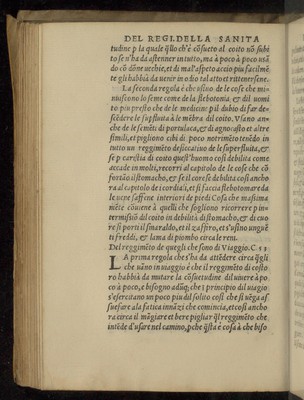 DEL REGI. DELLA SANITA
tudine p la quale q̃llo ch'è cõsueto al coito nõ subi
to se n'ha da astenner in tutto, ma à poco à poco usãn
do cõ dõne uecchie, et di mal'aspeto acciò piu facilmẽ
te gli habbià da uenir in odio tal atto et rittenersene.
La seconda regola è che usino de le cose che mi
nuiscono lo seme come de la flebotonia & dil uomi
to piu presto che de le medicine p il dubio di far de-
scẽdere le supfluità à le mẽbra dil coito. Vsano an-
che de le semẽti di portulaca, & di agnocasto et altre
simili, et pigliono cibi di poco notrimẽto tenẽdo in
tutto un reggimẽto desiccatiuo de le superfluità, &
se p carestia di coito quest'huomo cosi debilita come
accade in molti, recorri al capitolo de le cose che cõ
fortão il stomacho, & se il core se debilita cosi ancho
ra al capitolo de i cordiali, et si faccia flebotomare da
le uene saffene interiori de piedi. Cosa che massima
mẽte cõuiene à quelli che sogliono ricorrere p in-
termissiõ dil coito in debilità di stomacho, & di cuo
re si porti il smaraldo, et il zaffiro, et s'usino unguẽ
ti freddi, & lama di piombo circa le reni.
Del reggimẽto de quegli che sono di Viaggio. C. 13
LA prima regola che s'ha da attẽdere circa q̃gli
che uãno in uiaggio è che il reggimẽto di costo
ro habbià da mutare la cõsuetudine dil uiuere à po
co à poco, è bisogno adũq; che i principio dil uiagio
s'esercitano un poco piu dil solito cosi che si uẽga as
suefare a la fatica innãzi che comincia, et cosi ancho
ra circa il mãgiare et bere pigliar q̃l reggimẽto che
intẽde d'usare nel camino, pche q̃sta è cosa à che biso